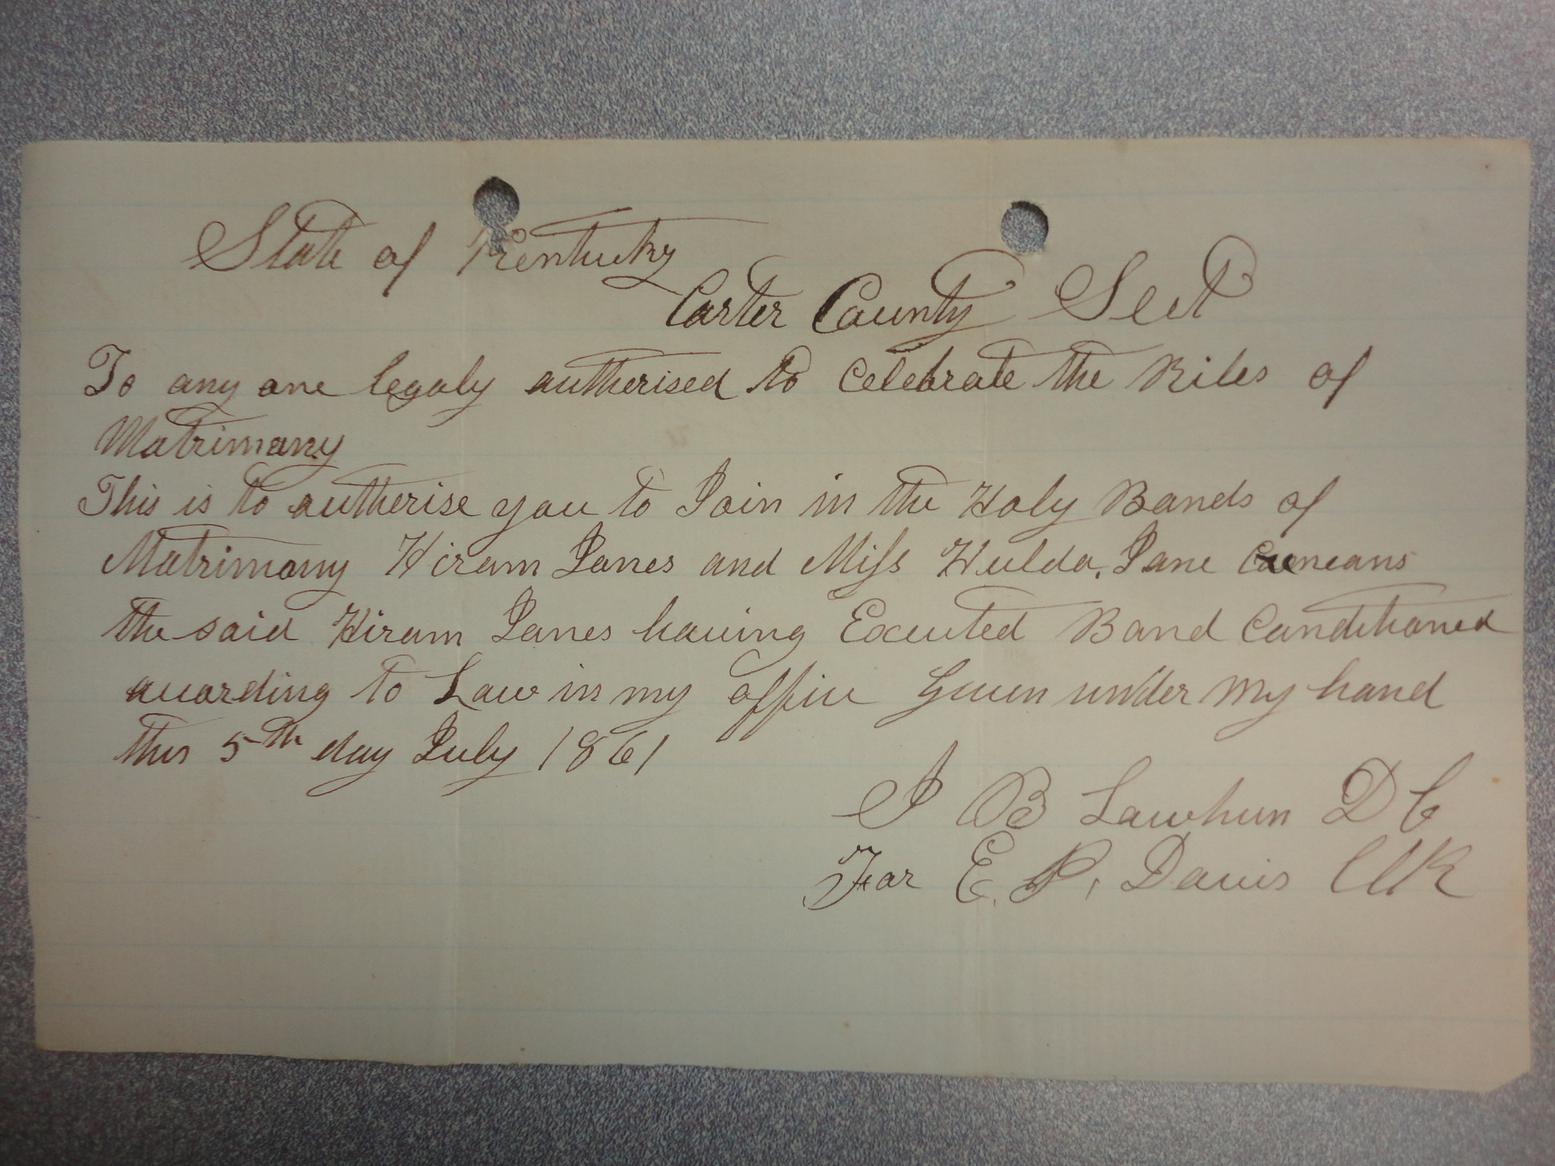 State of Kentucky
Carter County Sect
To any one legaly autherised to Celebrate the Rites of
Matrimony
This is to autherise you to Join in the Holy Bonds of
Matrimony Hiram Jones and Miss Hulda. Jane
the said Hiram Jones having Executed Bond Conditioned
according to Law in my office Given under my hand
this 5th day July 1861
J B Lawhun D C
For E. P. Davis Clk